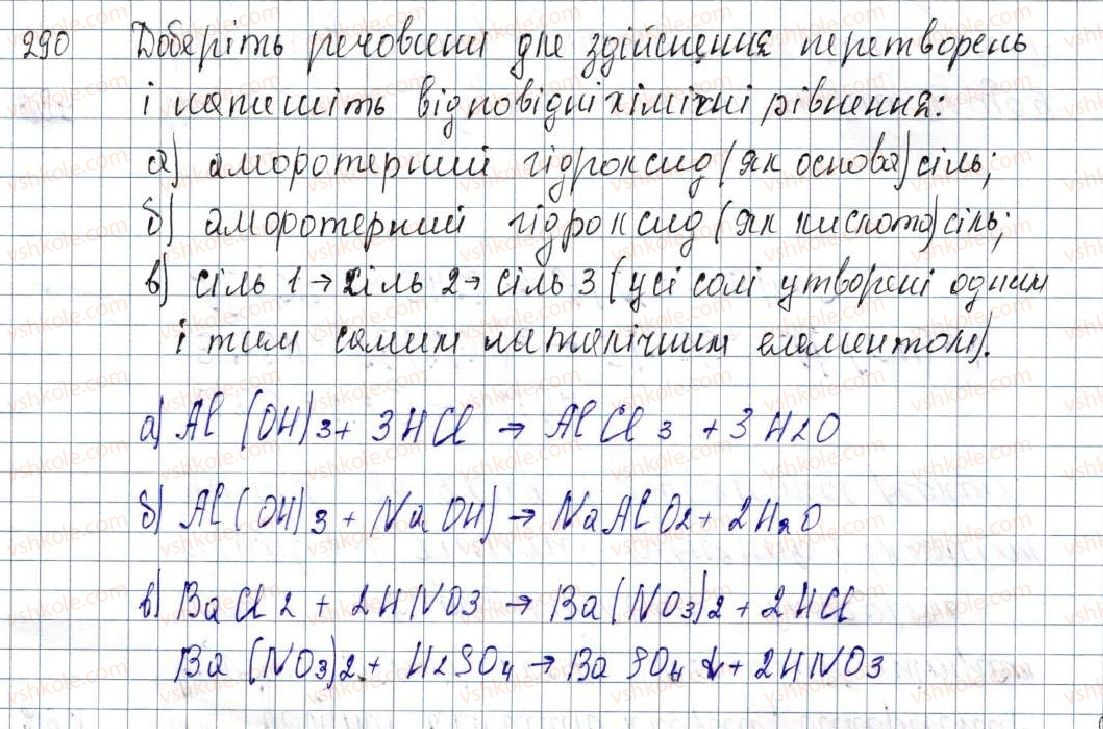 290 Доберіть речовини для здійснення перетворень
і напишіть відповідні хімічні рівнення:
а) аморотерний гідроксид (як основа) сіль;
б) аморотерний гідроксид (як кислота) сіль;
в) сіль 1 → сіль 2 → сіль 3 (усі солі утворені одним
і тим самим металічним елементом).
а) Al(OH)3 + 3HCl → AlCl3 + 3H2O
б) Al(OH)3 + NaOH) → NaAlO2 + 2H2O
в) BaCl2 + 2HNO3 → Ba(NO3)2 + 2HCl
Ba(NO3)2 + H2SO4 → BaSO4 ↓ + 2HNO3